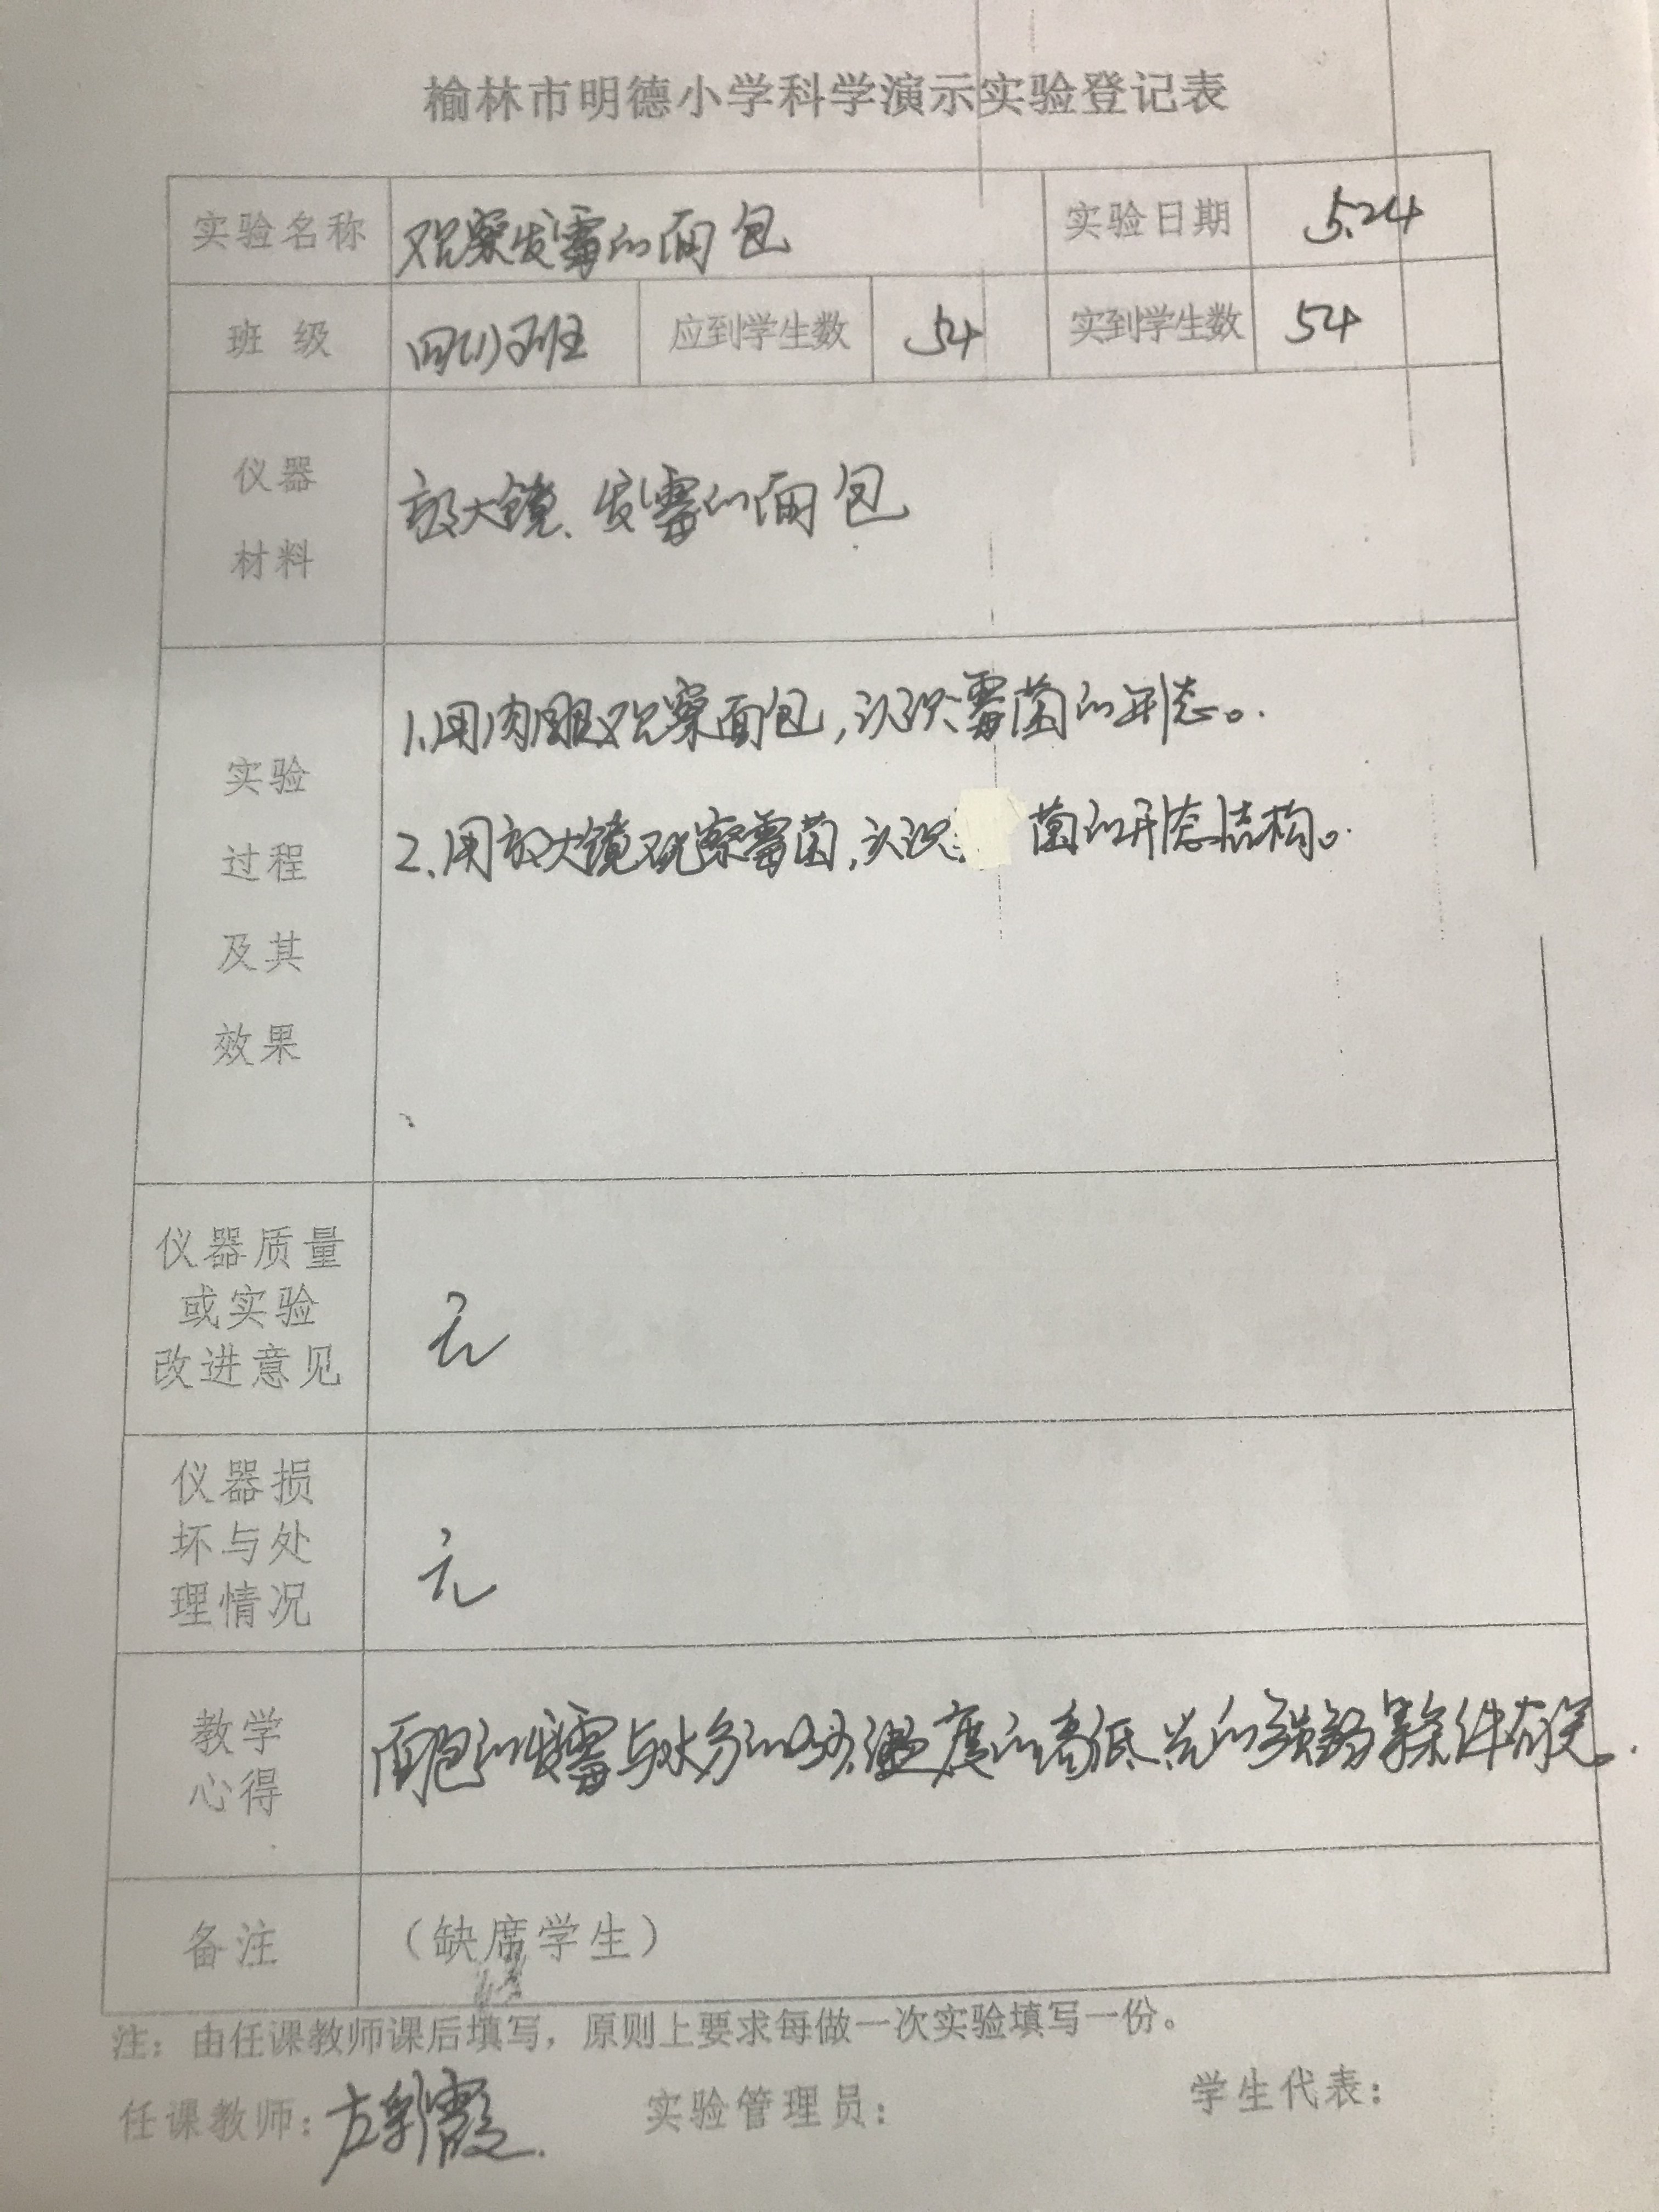 榆林市明德小学科学演示实验登记表
实验名称 观察发霉的面包 实验日期 5.24
班 级 四(1)班 应到学生数 54 实到学生数 54
仪器
材料
放大镜、发霉的面包
实验
过程
及其
效果
1.用肉眼观察面包,认识霉菌的形态。
2.用放大镜观察霉菌,认识 菌的形态结构。
仪器质量
或实验
改进意见
无
仪器损
坏与处
理情况
无
教学
心得
面包的发霉与水分的多少、温度的高低、光的强弱等条件有关。
备注 (缺席学生)
注:由任课教师课后填写,原则上要求每做一次实验填写一份。
任课教师: 霞 实验管理员: 学生代表: